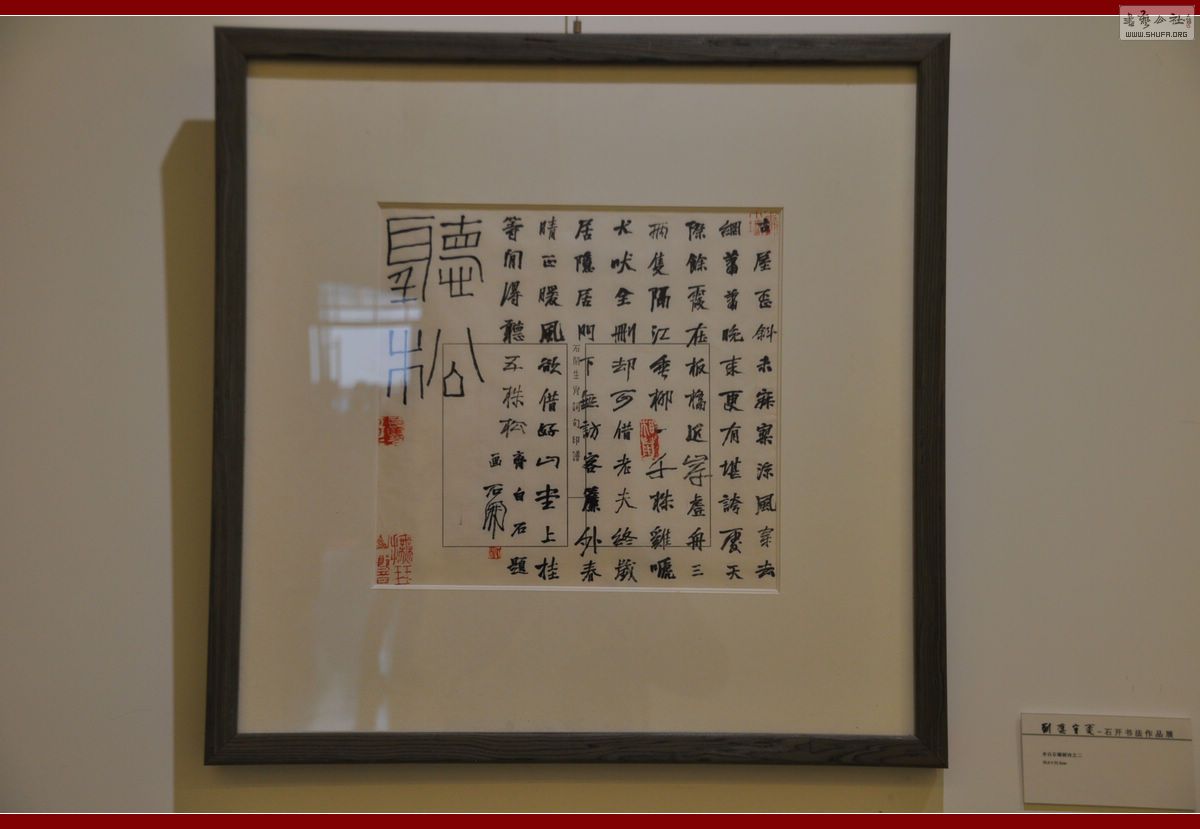 古屋歪斜未寂寞涼風穿去
網蕭蕭晚來更有堪誇處天
際餘霞在板橋近岸虛舟三
兩隻隔江垂柳一千株雞嗁
犬吠全刪却可借老夫終歲
居隱居門下無訪客簾外春
晴正暖風欲借好山坐上挂
等閒得聽五株松齊白石題
画石開
聽松
石開生肖詞句印譜
石开书法作品展
书艺公社
WWW.SHUFA.ORG